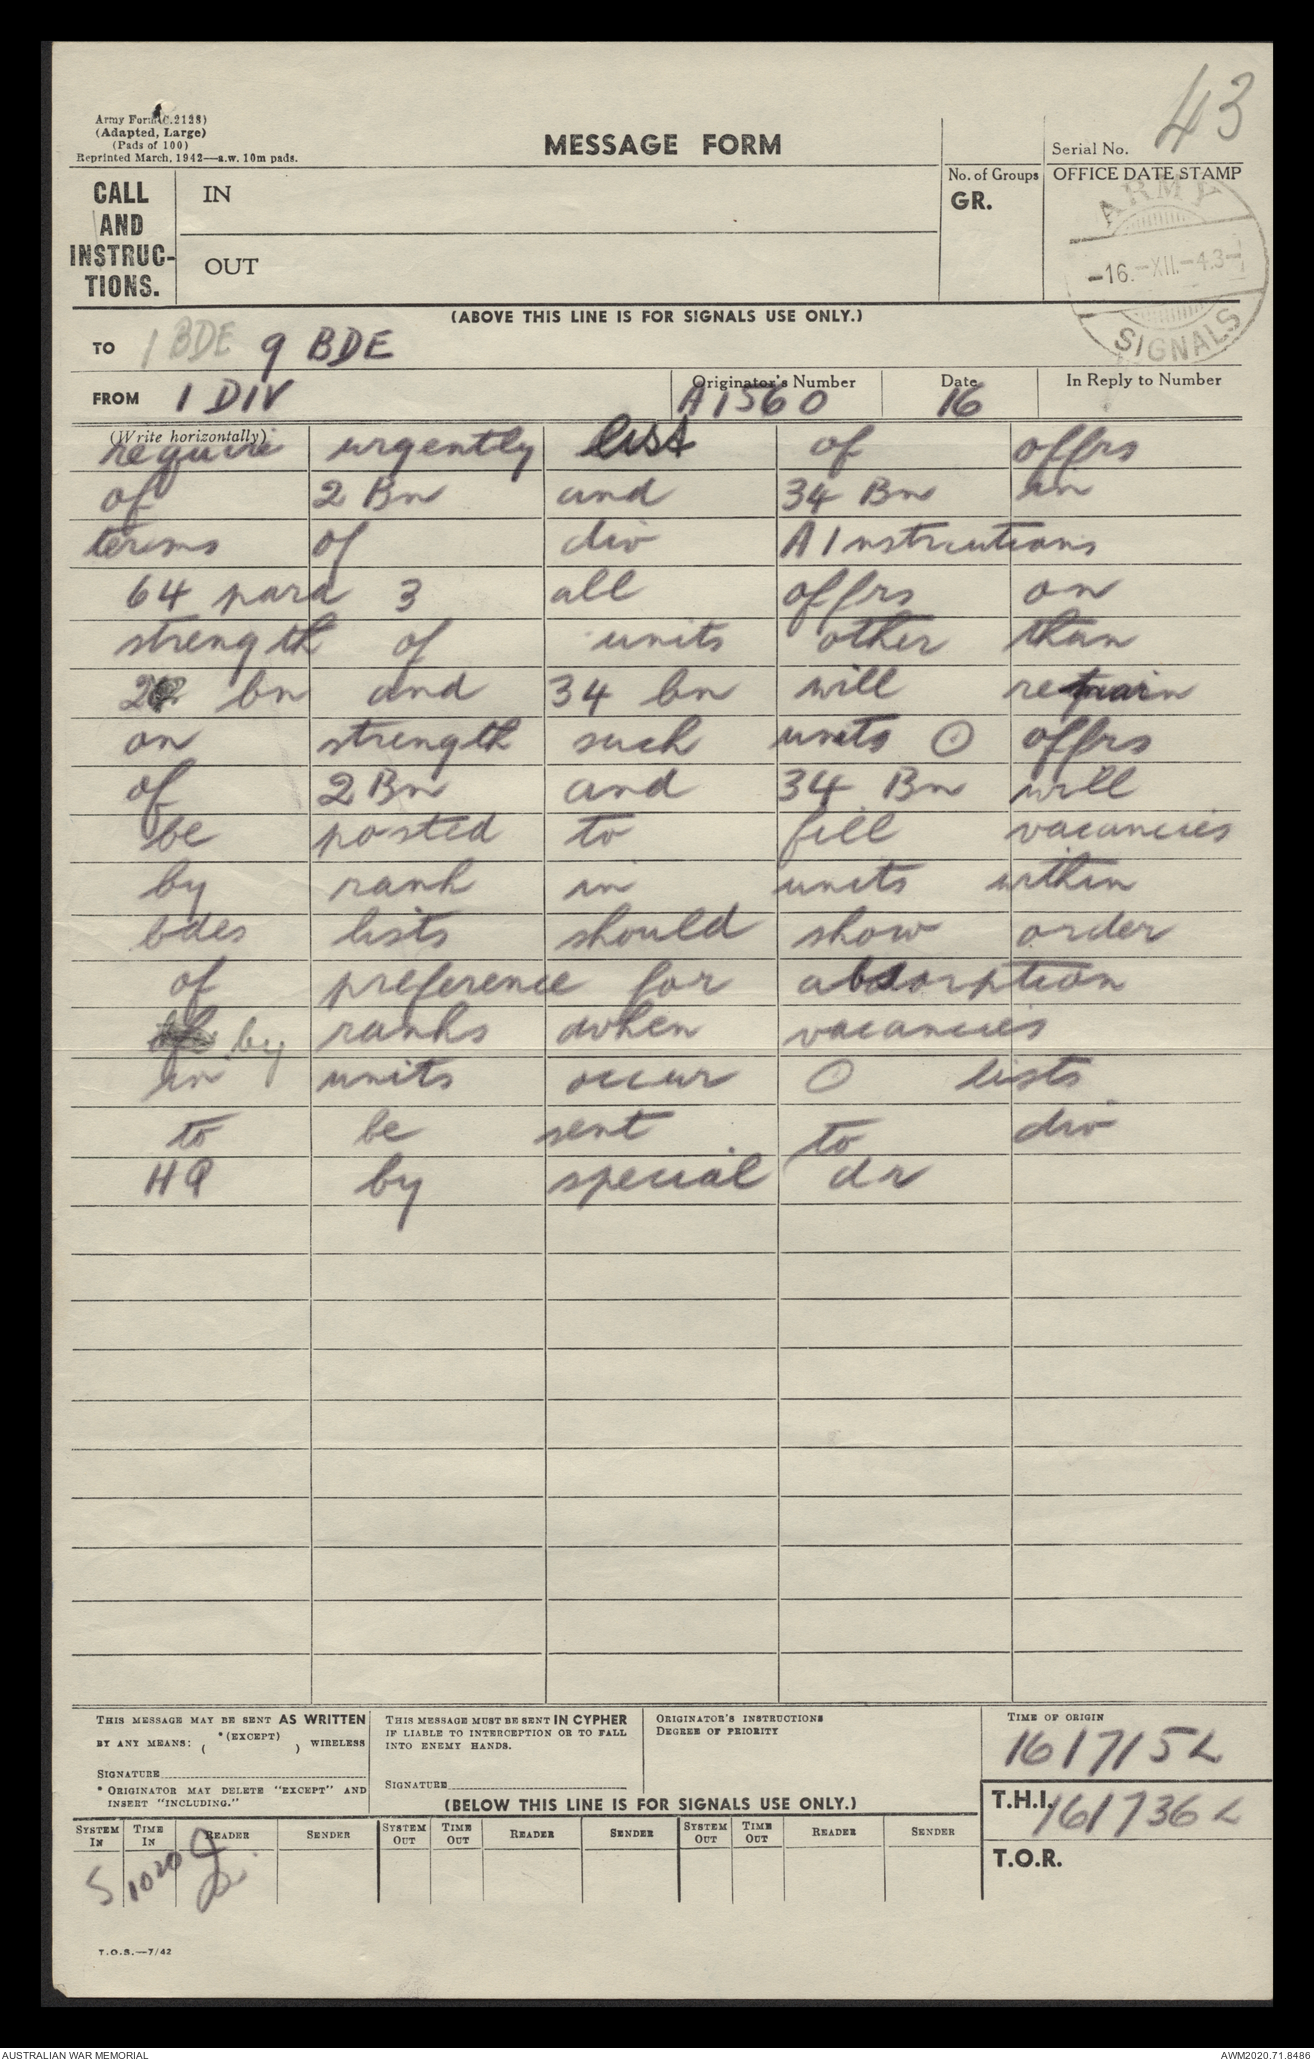 Army Form C.2128)
(Adapted, Large)
(Pads of 100)
Reprinted March, 1942—a.w. 10m pads.
MESSAGE FORM
Serial No. 43
CALL AND INSTRUC-TIONS.
IN
OUT
No. of Groups
GR.
OFFICE DATE STAMP
ARMY
-16.-XII.-43-
SIGNALS
(ABOVE THIS LINE IS FOR SIGNALS USE ONLY.)
TO 1 BDE 9 BDE
FROM 1 DIV
Originator's Number A1560
Date 16
In Reply to Number
(Write horizontally)
require urgently list of offrs
of 2 Bn and 34 Bn in
terms of div A Instructions
64 para 3 all offrs on
strength of units other than
2 bn and 34 bn will remain
on strength such units ⊙ offrs
of 2 Bn and 34 Bn will
be posted to fill vacancies
by rank in units within
bdes lists should show order
of preference for absorption
by ranks when vacancies
in units occur ⊙ lists
to be sent to div
HQ by special dr
THIS MESSAGE MAY BE SENT AS WRITTEN
BY ANY MEANS: ( *(EXCEPT) ) WIRELESS
SIGNATURE
* ORIGINATOR MAY DELETE "EXCEPT" AND
INSERT "INCLUDING."
THIS MESSAGE MUST BE SENT IN CYPHER
IF LIABLE TO INTERCEPTION OR TO FALL
INTO ENEMY HANDS.
SIGNATURE
ORIGINATOR'S INSTRUCTIONS
DEGREE OF PRIORITY
TIME OF ORIGIN
161715L
(BELOW THIS LINE IS FOR SIGNALS USE ONLY.)
T.H.I. 161736L
T.O.R.
SYSTEM IN TIME IN READER SENDER SYSTEM OUT TIME OUT READER SENDER SYSTEM OUT TIME OUT READER SENDER
S 1020
T.O.S.—7/42
AUSTRALIAN WAR MEMORIAL
AWM2020.71.8486